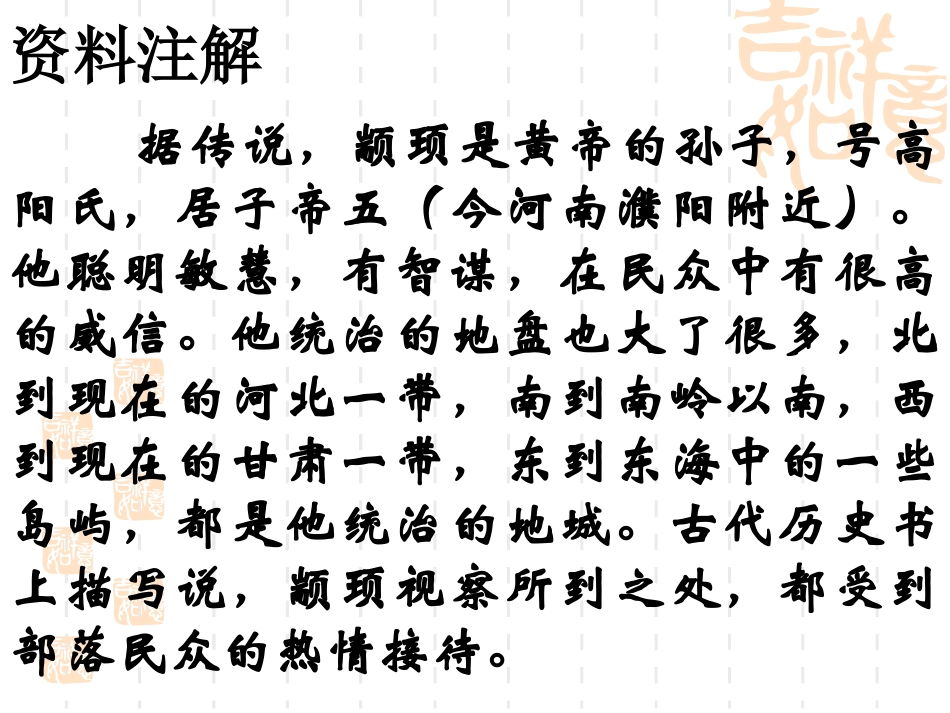 资料注解
吉祥如意
据传说，颛顼是黄帝的孙子，号高
阳氏，居子帝五（今河南濮阳附近）。
他聪明敏慧，有智谋，在民众中有很高
的威信。他统治的地盘也大了很多，北
到现在的河北一带，南到南岭以南，西
到现在的甘肃一带，东到东海中的一些
岛屿，都是他统治的地城。古代历史书
上描写说，颛顼视察所到之处，都受到
部落民众的热情接待。